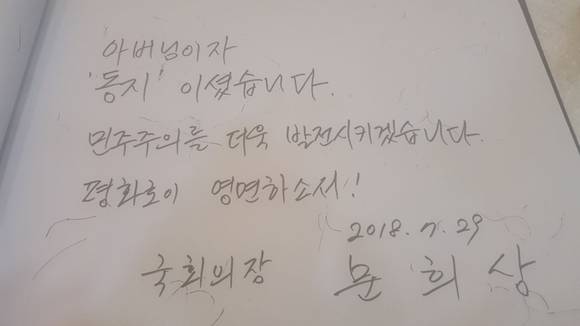 아버님이자
'동지' 이셨습니다.
민주주의를 더욱 발전시키겠습니다.
평화로이 영면하소서!
2018. 7. 29
국회의장 문 희 상